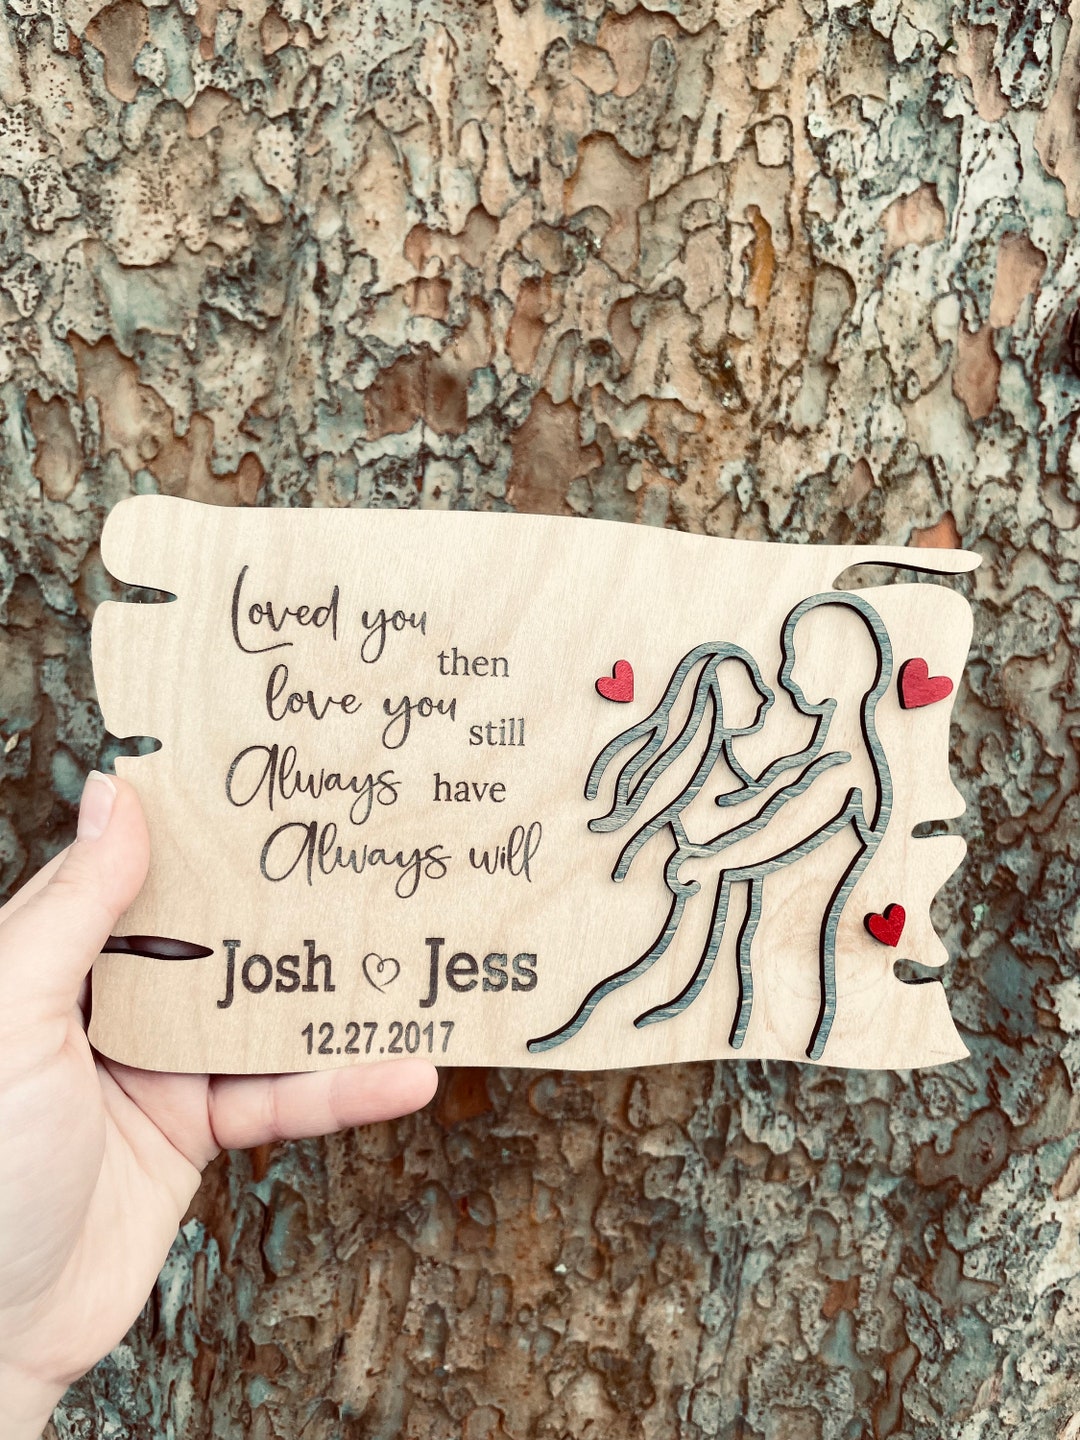 Loved you
then
love you
still
Always have
Always will
Josh ♡ Jess
12.27.2017